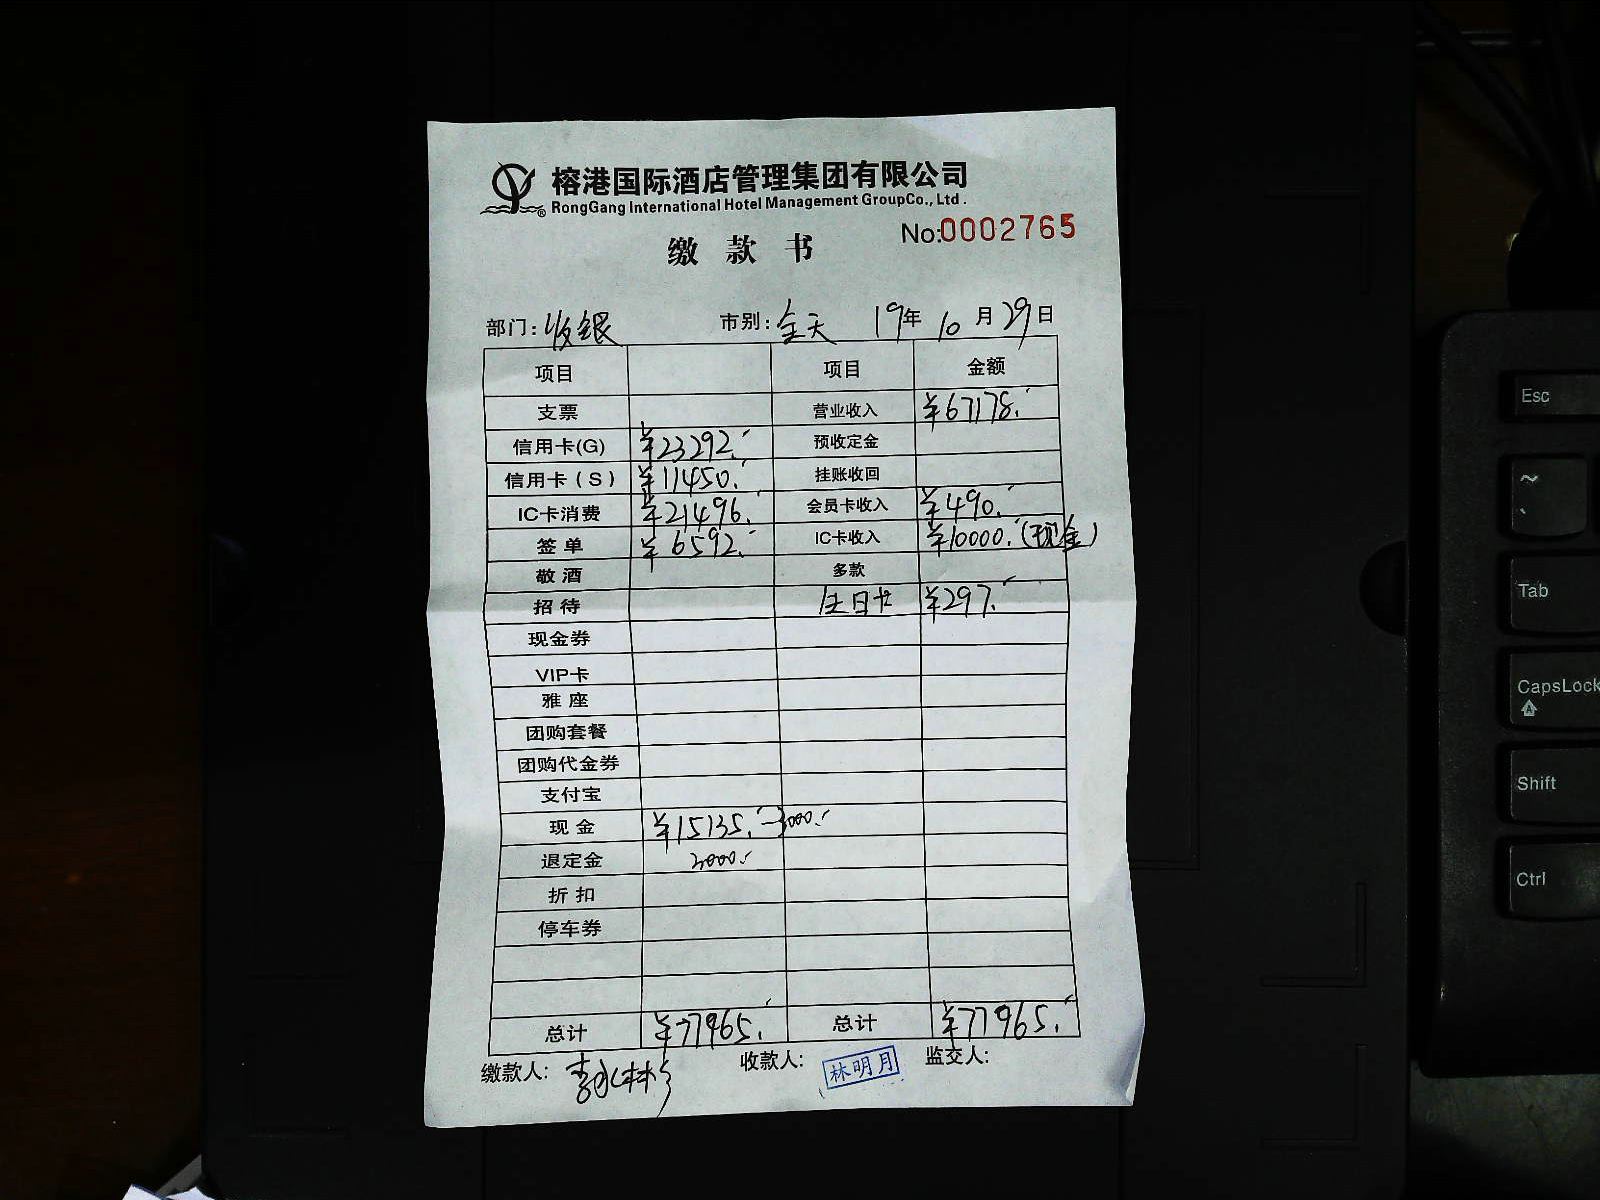 榕港国际酒店管理集团有限公司
RongGang International Hotel Management GroupCo., Ltd.
No:0002765
缴 款 书
部门: 收银 市别: 全天 19年 10月 29日
项目 项目 金额
支票 营业收入 ¥67178.-
信用卡(G) ¥23292.- 预收定金
信用卡(S) ¥11450.- 挂账收回
IC卡消费 ¥21496.- 会员卡收入 ¥490.-
签单 ¥6592.- IC卡收入 ¥10000.-(现金)
敬酒 多款
招待 生日卡 ¥297.-
现金券
VIP卡
雅座
团购套餐
团购代金券
支付宝
现金 ¥15135.--3000.-
退定金 3000.-
折扣
停车券
总计 ¥77965.- 总计 ¥77965.-
缴款人: 收款人: 林明月 监交人:
Esc
~
`
Tab
CapsLock
A
Shift
Ctrl